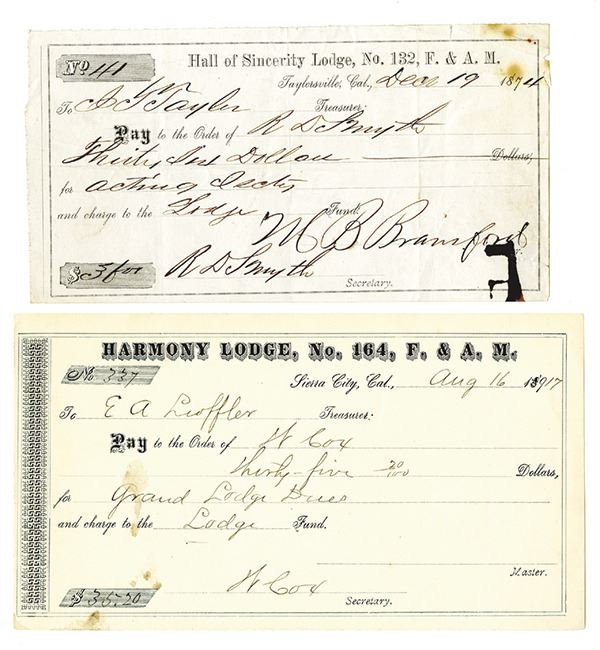 Hall of Sincerity Lodge, No. 132, F. & A. M.
No 41
Taylorsville, Cal., Dec 19 1874
To Taylor Treasurer:
Pay to the Order of R D Smyth
Thirty Dollars Dollars,
for acting
and charge to the Lodge Fund.
M B Bransford
$ R D Smyth
Secretary.
HARMONY LODGE, No. 164, F. & A. M.
No 337
Sierra City, Cal., Aug 16 1917
To E A Treasurer:
Pay to the Order of W Cox
Thirty-five 20/100 Dollars,
for Grand Lodge Dues
and charge to the Lodge Fund.
Master.
$ 35.20 W Cox
Secretary.